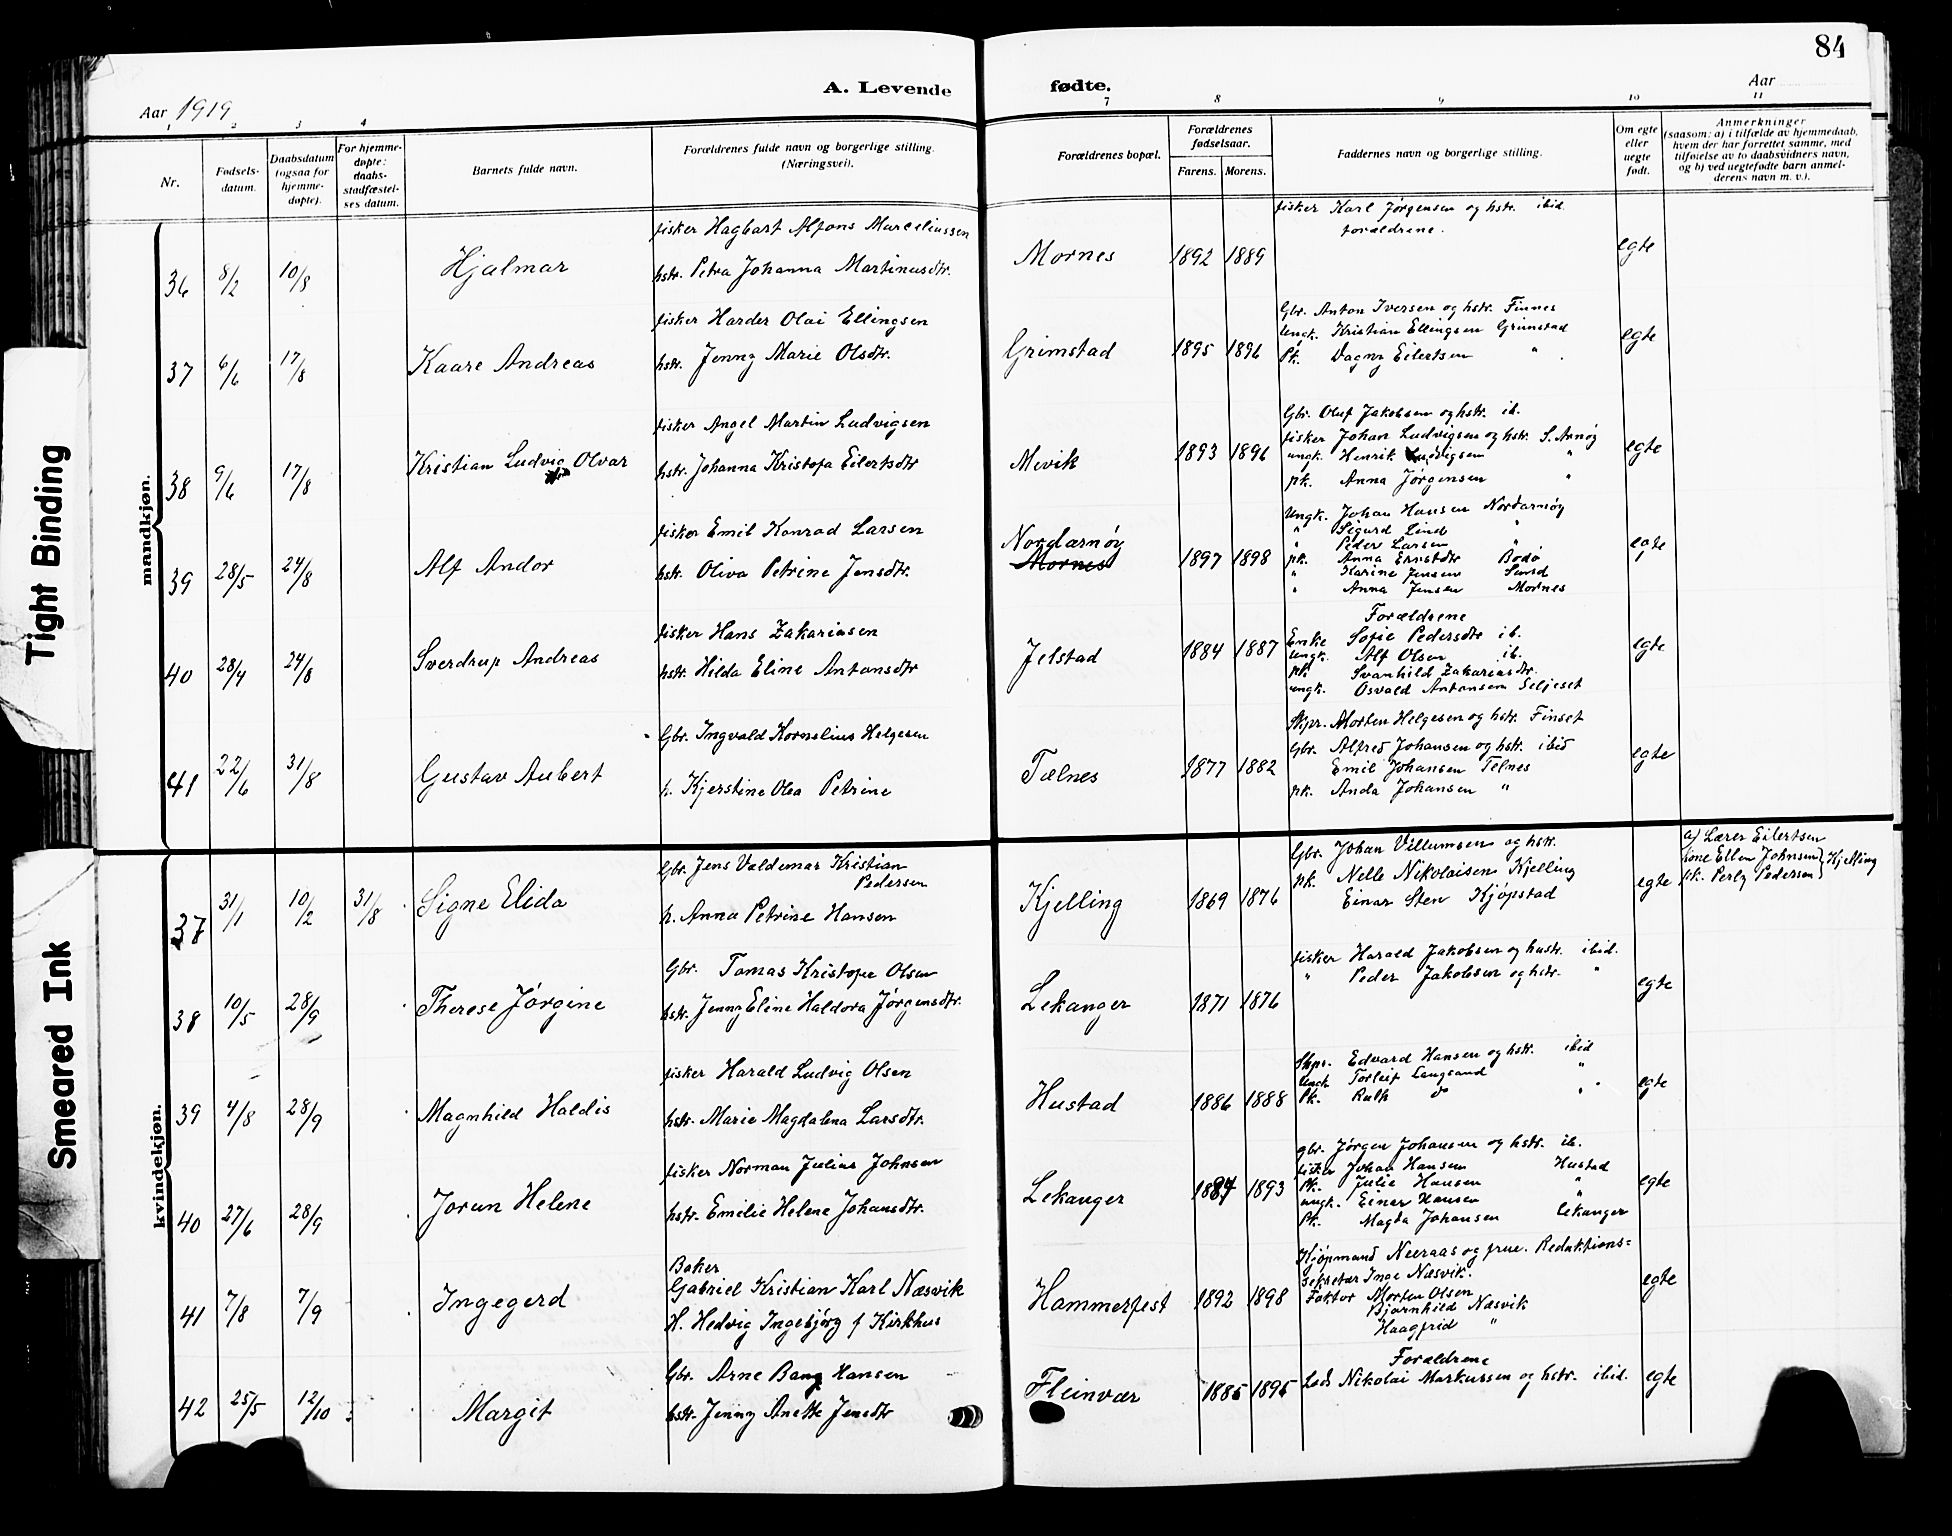 84
A. Levende fødte.
Aar 1919
Aar
1 2 3 4 7 8 9 10 11
Nr.
Fødsels-
datum.
Daabsdatum
(ogsaa for
hjemme-
døpte).
For hjemme-
døpte:
daabs-
stadfæstel-
ses datum.
Barnets fulde navn.
Forældrenes fulde navn og borgerlige stilling.
(Næringsvei).
Forældrenes bopæl.
Forældrenes
fødselsaar.
Farens. Morens.
Faddernes navn og borgerlige stilling.
Om egte
eller
uegte
født.
Anmerkninger
(saasom: a) i tilfælde av hjemmedaab,
hvem der har forrettet samme, med
tilføielse av to daabsvidners navn,
og b) ved uegtefødte barn anmel-
derens navn m. v.).
Tight Binding
Smeared Ink
mandkjøn.
36 8/2 10/8 Hjalmar
fisker Hagbart Alfons Marceliussen
hstr. Petra Johanna Martinusdtr.
Mornes 1892 1889
fisker Karl Jørgensen og hstr. ibid.
forældrene.
egte
37 6/6 17/8 Kaare Andreas
fisker Harder Olai Ellingsen
hstr. Jenny Marie Olsdtr.
Grimstad 1895 1896
Gbr. Anton Iversen og hstr. Finnes
Ungk. Kristian Ellingsen Grimstad
Pk. Dagny Eilertsen "
egte
38 9/6 17/8 Kristian Ludvig Olvar
fisker Angel Martin Ludvigsen
hstr. Johanna Kristofa Eilertsdtr
Mevik 1893 1896
Gbr. Oluf Jakobsen og hstr. ib.
fisker Johan Ludvigsen og hstr. S. Arnøy
ungk. Henrik Ludvigsen "
pk. Anna Jørgensen "
egte
39 28/5 24/8 Alf Andor
fisker Emil Konrad Larsen
hstr. Oliva Petrine Jensdtr.
Nordarnøy
Mornes
1897 1898
Ungk. Johan Hansen Nordarnøy
" Sigurd Lind "
" Peder Larsen "
pk. Anna Ernstdtr Bodø
" Karine Jensen Sund
" Anna Jensen Mornes
egte
40 28/4 24/8 Sverdrup Andreas
fisker Hans Zakariasen
hstr. Hilda Eline Antonsdtr
Jelstad 1884 1887
Forældrene
Enke Sofie Pedersdtr ib.
Ungk. Alf Olsen ib.
pk Svanhild Zakariasdtr.
ungk. Osvald Antonsen Seljeset
egte
41 22/6 31/8 Gustav Aubert
Gbr. Ingvald Kornelius Helgesen
h. Kjerstine Olea Petrine
Tælnes 1877 1882
Skpr. Morten Helgesen og hstr. Finset
Gbr. Alfred Johansen og hstr. ibid
Emil Johansen Telnes
pk. Anda Johansen "
egte
kvindekjøn.
37 31/1 10/2 31/8 Signe Elida
Gbr. Jens Valdemar Kristian
Pedersen
h. Anna Petrine Hansen
Kjelling 1869 1876
Gbr. Johan Villumsen og hstr.
pk. Nelle Nikolaisen Kjelling
Einar Sten Kjøpstad
egte
a) Lærer Eilertsen
kone Ellen Johnsen } Kjelling
pk. Perly Pedersen
38 10/5 28/9 Therese Jørgine
Gbr. Tomas Kristofer Olsen
hstr. Jenny Eline Haldora Jørgensdtr.
Lekanger 1871 1876
fisker Harald Jakobsen og hustr. ibid.
" Peder Jakobsen og hstr. "
egte
39 4/8 28/9 Magnhild Haldis
fisker Harald Ludvig Olsen
hstr. Marie Magdalena Larsdtr.
Hustad 1886 1888
Skpr. Edvard Hansen og hstr. ibid
Ungk Torleif Langsand "
Pk. Ruth do "
egte
40 27/6 28/9 Jorun Helene
fisker Norman Julius Johnsen
hstr. Emilie Helene Johansdtr.
Lekanger 1884 1893
gbr. Jørgen Johansen og hstr. ib.
fisker Johan Hansen Hustad
Pk. Julie Hansen "
ungk. Einar Hansen "
Pk. Magda Johansen Lekanger
egte
41 7/8 7/9 Ingegerd
Baker
Gabriel Kristian Karl Næsvik
H. Hedvig Ingebjørg f Kirkhus
Hammerfest 1892 1898
Kjøpmand Neeraas og frue. Redaktions-
sekretær Inge Næsvik.
Faktor Morten Olsen
Bjarnhild Næsvik
Haagfrid "
egte
42 25/5 12/10 Margit
Gbr. Arne Bang Hansen
hstr. Jenny Anette Jensdtr
Fleinvær 1885 1895
Forældrene
Lods Nikolai Markussen og hstr. ibid.
egte